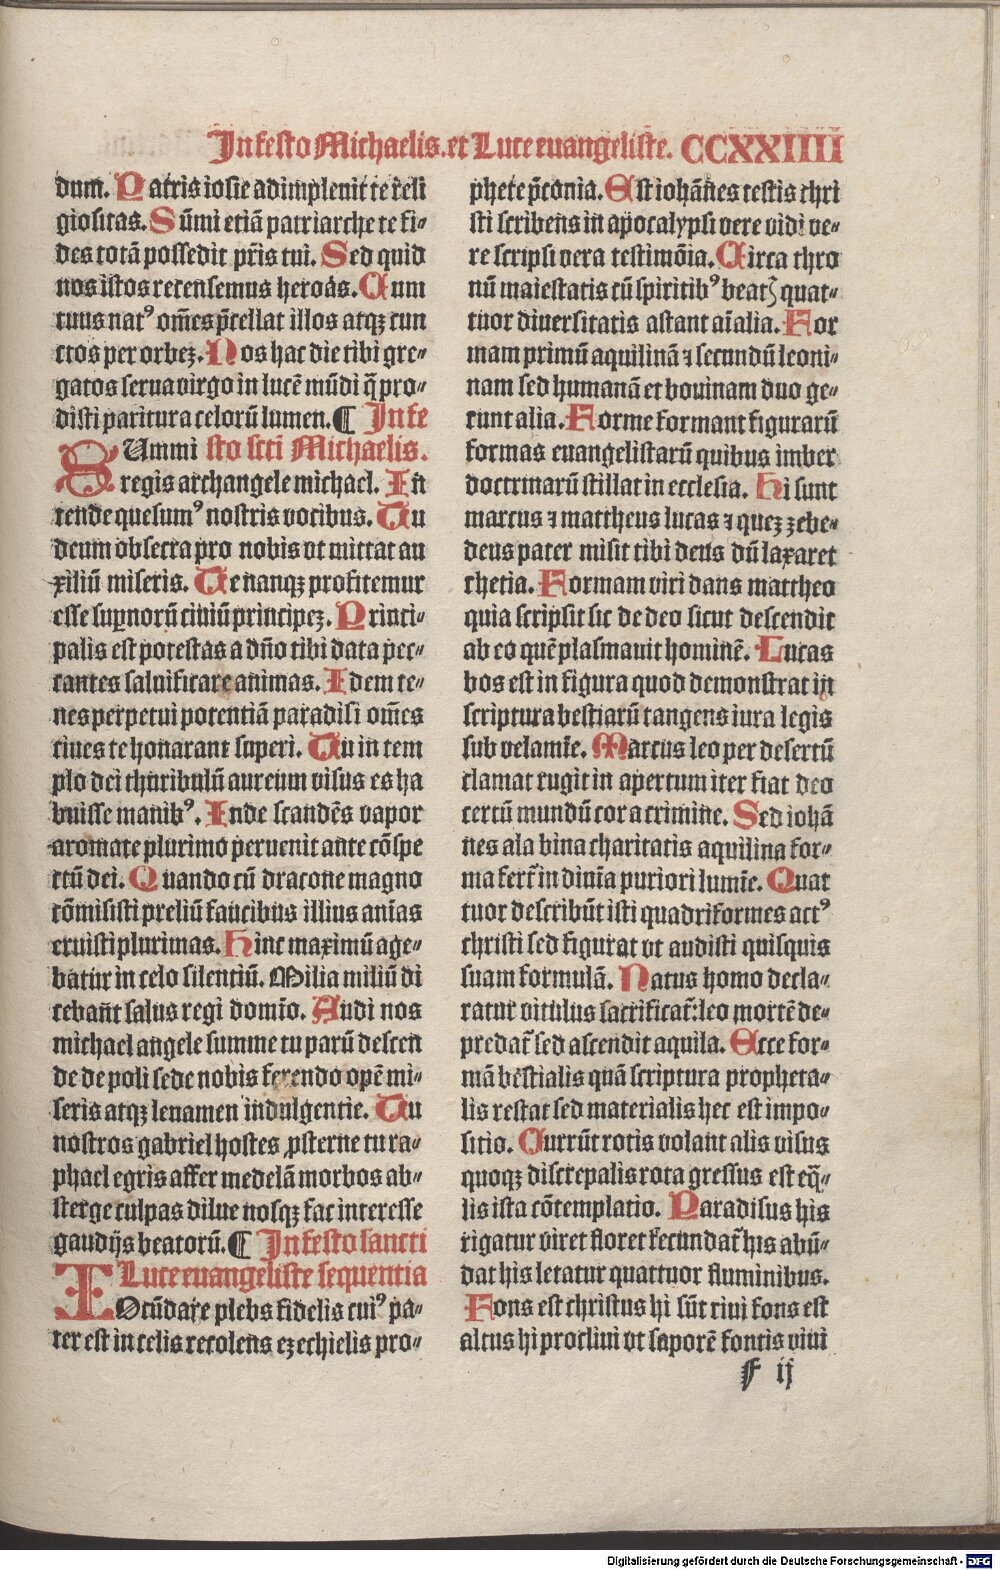 In festo Michaelis. et Luce euangeliste. CCXXIIII
dum. Patris iosie adimpleuit te reli
giositas. Sūmi etiā patriarche te fi-
des totā possedit pr̄is tui. Sed quid
nos istos recensemus heroas. Cum
tuus natꝰ om̄es p̄cellat illos atqꝫ cun
ctos per orbeꝫ. Nos hac die tibi gre-
gatos serua virgo in lucē mūdi q̄ pro-
disti paritura celorū lumen. ¶ In fe
sto scti Michaelis.
SUmmi
regis archangele michael. In
tende quesumꝰ nostris vocibus. Tu
deum obsecra pro nobis vt mittat au
xiliū miseris. Te nanqꝫ profitemur
esse supnorū ciuiū principeꝫ. Princi-
palis est potestas a dn̄o tibi data pec-
cantes saluificare animas. Idem te-
nes perpetui potentiā paradisi om̄es
ciues te honorant superi. Tu in tem
plo dei thuribulū aureum visus es ha
buisse manibꝰ. Inde scandēs vapor
aromate plurimo peruenit ante cōspe
ctū dei. Quando cū dracone magno
cōmisisti preliū faucibus illius anīas
eruisti plurimas. Hinc maximū age-
batur in celo silentiū. Milia miliū di
cebant salus regi domīo. Audi nos
michael angele summe tu parū descen
de de poli sede nobis ferendo opē mi-
seris atqꝫ lenamen indulgentie. Tu
nostros gabriel hostes ꝓsterne tu ra-
phael egris affer medelā morbos ab-
sterge culpas dilue nosqꝫ fac interesse
gaudijs beatorū. ¶ In festo sancti
Luce euangeliste sequentia
IOcūdare plebs fidelis cuiꝰ pa-
ter est in celis recolens ezechielis pro-
phete p̄conia. Est iohānes testis chri
sti scribens in apocalypsi vere vidi ve-
re scripsi vera testimōia. Circa thro
nū maiestatis cū spiritibꝰ beatꝭ quat-
tuor diuersitatis astant aīalia. For
mam primū aquilinā ⁊ secundū leoni-
nam sed humanā et bouinam duo ge-
runt alia. Forme formant figurarū
formas euangelistarū quibus imber
doctrinarū stillat in ecclesia. Hi sunt
marcus ⁊ mattheus lucas ⁊ queꝫ zebe-
deus pater misit tibi deus dū laxaret
rhetia. Formam viri dans mattheo
quia scripsit sic de deo sicut descendit
ab eo quē plasmauit hominē. Lucas
bos est in figura quod demonstrat in
scriptura hestiarū tangens iura legis
sub velamīe. Marcus leo per desertū
clamat rugit in apertum iter fiat deo
certū mundū cor a crimine. Sed iohā
nes ala bina charitatis aquilina for-
ma fert̄ in diuīa puriori lumīe. Quat
tuor describūt isti quadriformes actꝰ
christi sed figurat vt audisti quisquis
suam formulā. Natus homo decla-
ratur vitulus sacrificat̄: leo mortē de-
predat̄ sed ascendit aquila. Ecce for-
mā bestialis quā scriptura propheta-
lis restat sed materialis hec est impo-
sitio. Currūt rotis volant alis visus
quoqꝫ discrepalis rota gressus est eq̄-
lis ista cōtemplatio. Paradisus his
rigatur viret floret fecundat̄ his abū-
dat his letatur quattuor fluminibus.
Fons est christus hi sūt riui fons est
altus hi procliui vt saporē fontis viui
F ij
Digitalisierung gefördert durch die Deutsche Forschungsgemeinschaft - DFG